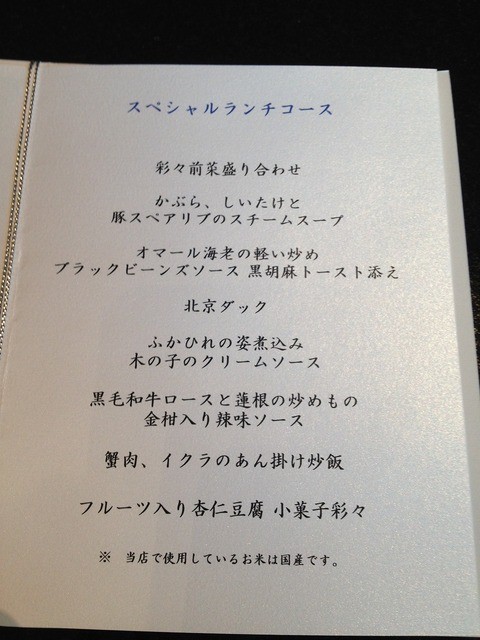 スペシャルランチコース
彩々前菜盛り合わせ
かぶら、しいたけと
豚スペアリブのスチームスープ
オマール海老の軽い炒め
ブラックビーンズソース 黒胡麻トースト添え
北京ダック
ふかひれの姿煮込み
木の子のクリームソース
黒毛和牛ロースと蓮根の炒めもの
金柑入り辣味ソース
蟹肉、イクラのあん掛け炒飯
フルーツ入り杏仁豆腐 小菓子彩々
※ 当店で使用しているお米は国産です。